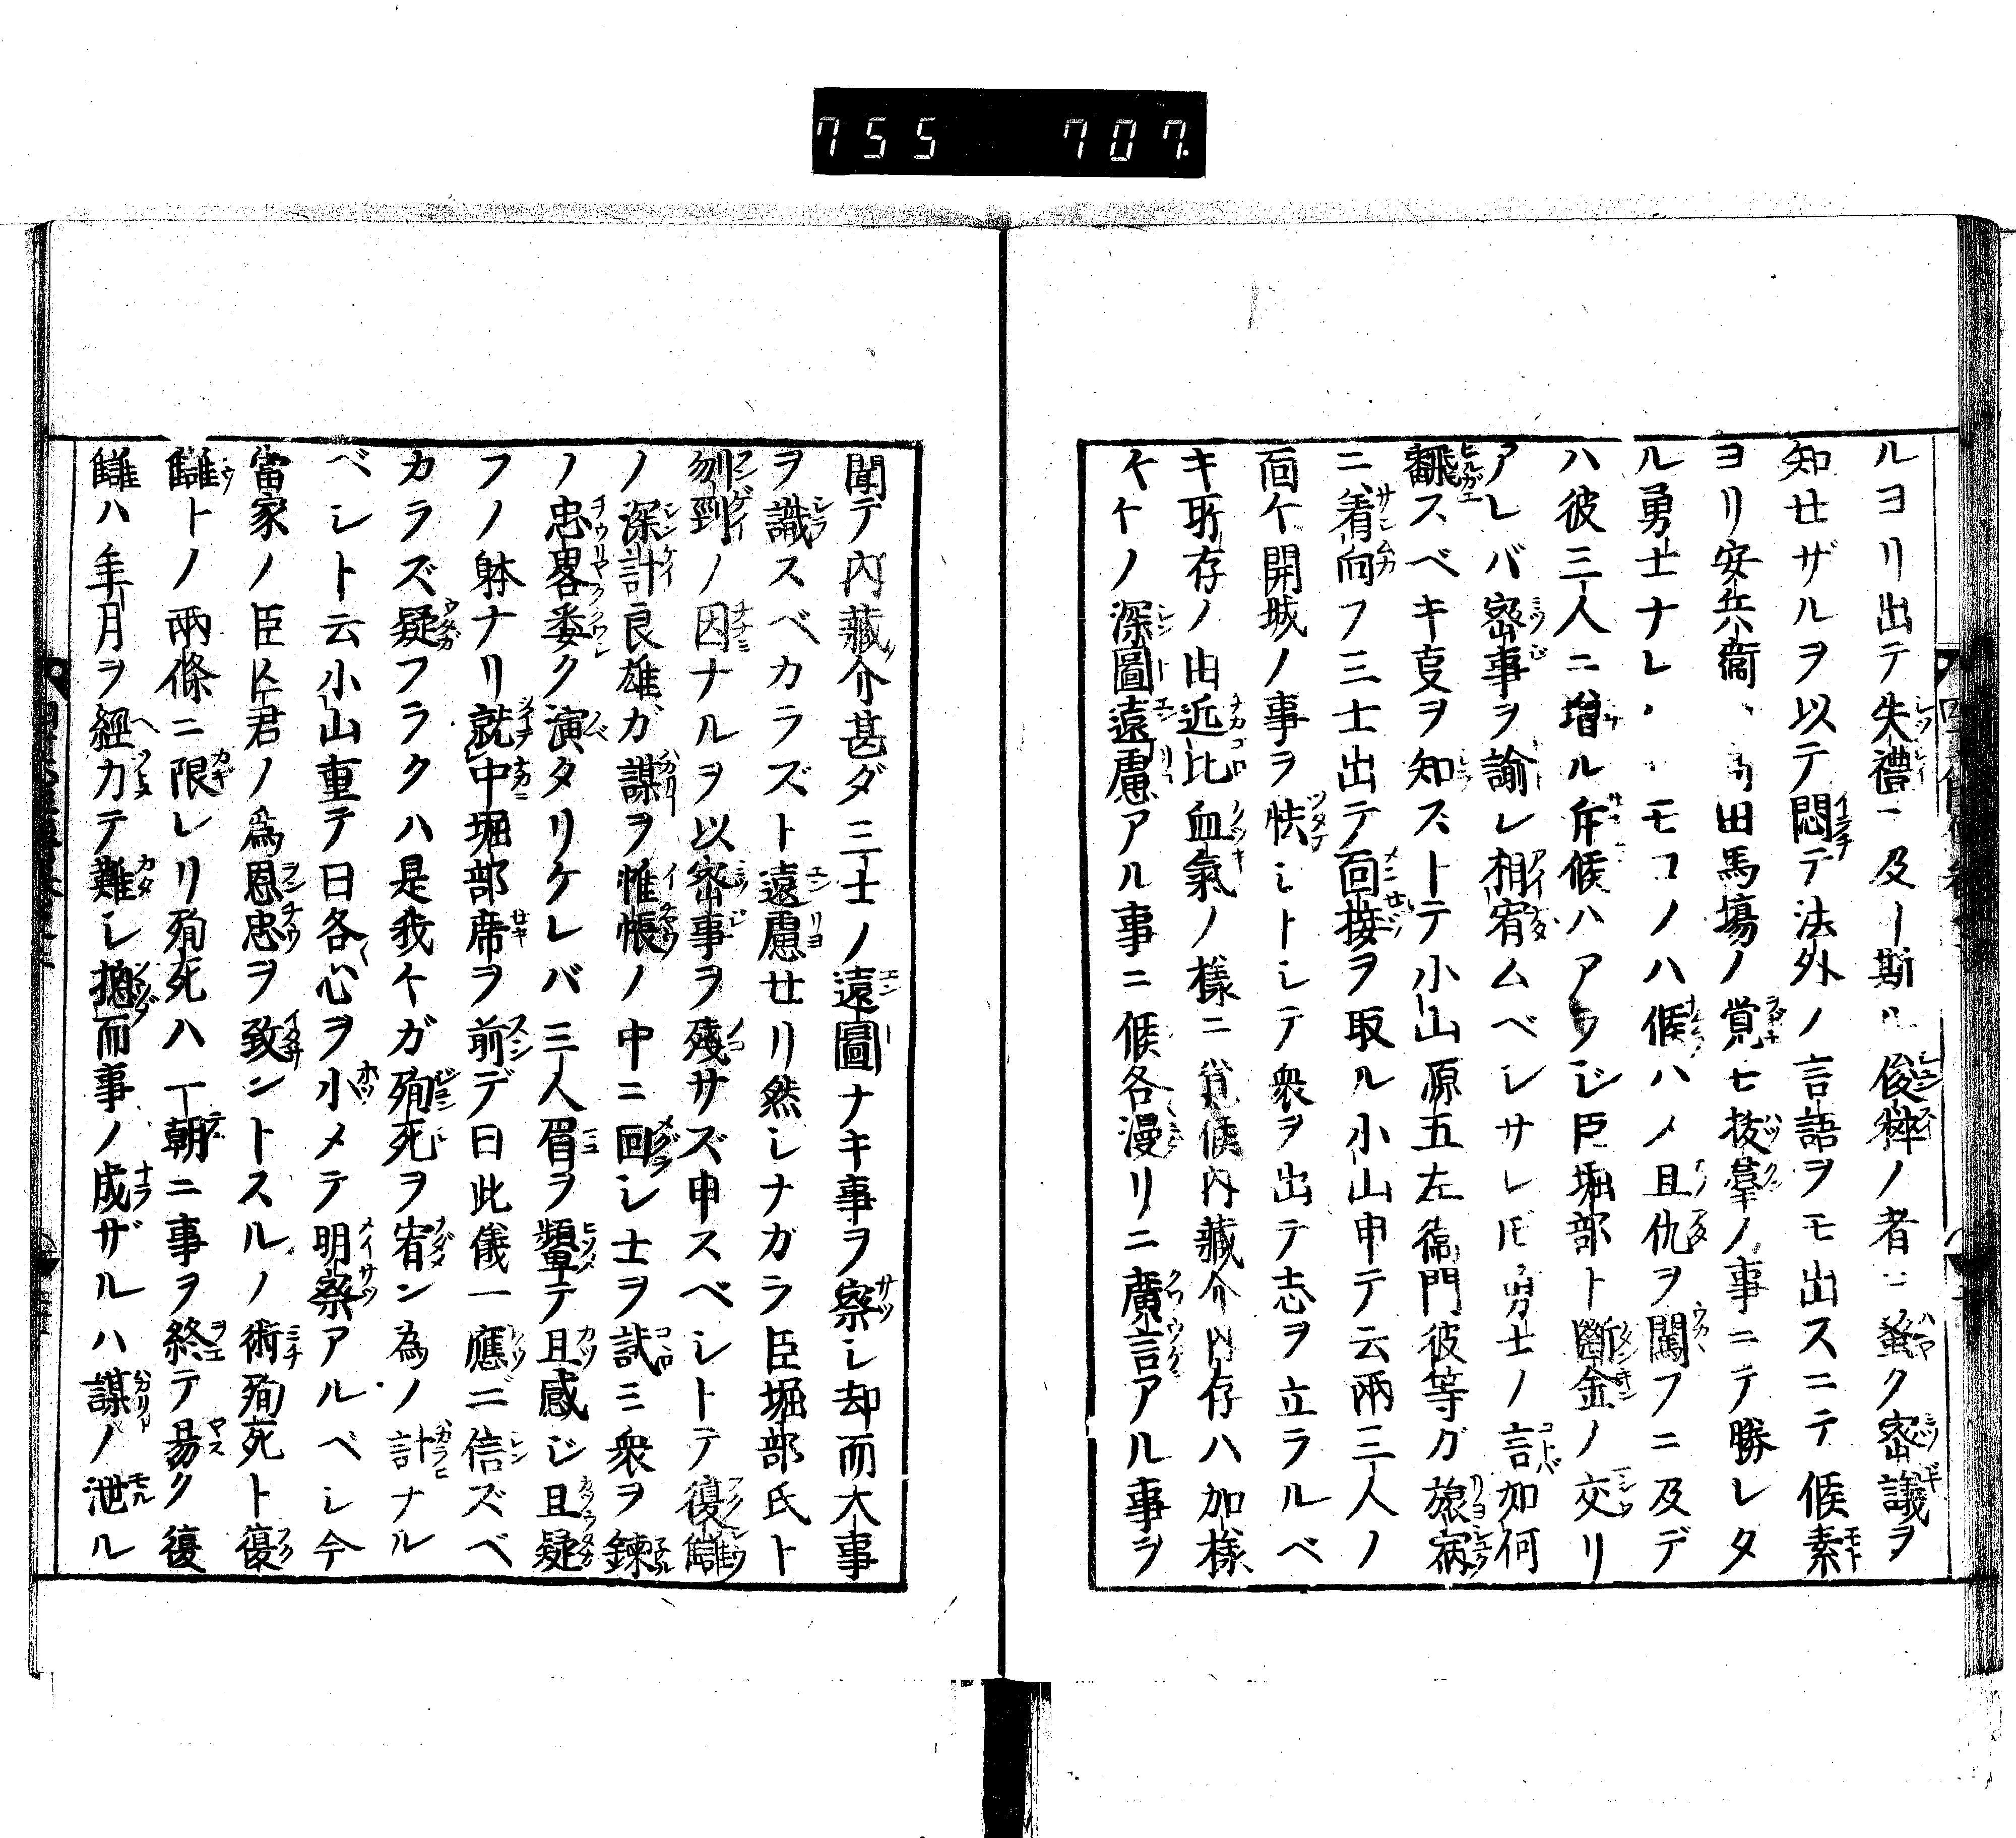 755 707.
ルヨリ出テ失禮ニ及ー斯ル俊粹ノ者ニ蚤ク密議ヲ
知セザルヲ以テ悶テ法外ノ言語ヲモ出スニテ候素
ヨリ安兵衞 田馬塲ノ覚ヒ抜羣ノ事ニテ勝レタ
ル勇士ナレ モコノハ候ハメ且仇ヲ闖フニ及デ
ハ彼三人ニ増ル斥候ハアラジ臣堀部ト斷金ノ交リ
アレバ密事ヲ諭レ相宥ムベシサレ𪜈勇士ノ言如何
飜スベキ㕝ヲ知ストテ小山源五左衞門彼等ガ旅宿
ニ着向フ三士出テ面接ヲ取ル小山申テ云兩三人ノ
面々開城ノ事ヲ怏シトシテ衆ヲ出テ志ヲ立ラルベ
キ所存ノ由近比血氣ノ樣ニ覚候内藏介内存ハ加樣
々々ノ深圖遠慮アル事ニ候各漫リニ廣言アル事ヲ
聞テ內藏介甚ダ三士ノ遠圖ナキ事ヲ察シ却而大事
ヲ識スベカラズト遠慮セリ然シナガラ臣堀部氏ト
刎到ノ因ナルヲ以密事ヲ殘サズ申スベシトテ復讎
ノ深計良雄ガ謀ヲ惟帳ノ中ニ回シ士ヲ試ミ衆ヲ錬
ノ忠畧委ク演タリケレバ三人眉ヲ顰テ且感ジ且疑
フノ躰ナリ就中堀部席ヲ前デ曰此儀一應ニ信ズベ
カラズ疑フラクハ是我々ガ殉死ヲ宥ン為ノ計ナル
ベシト云小山重テ曰各心ヲ小メテ明察アルベシ今
當家ノ臣等君ノ爲恩忠ヲ致ントスルノ術殉死ト復
讎トノ兩條ニ限レリ殉死ハ一朝ニ事ヲ終テ易ク復
讎ハ年月ヲ經カテ難シ揔而事ノ成ザルハ謀ノ泄ル